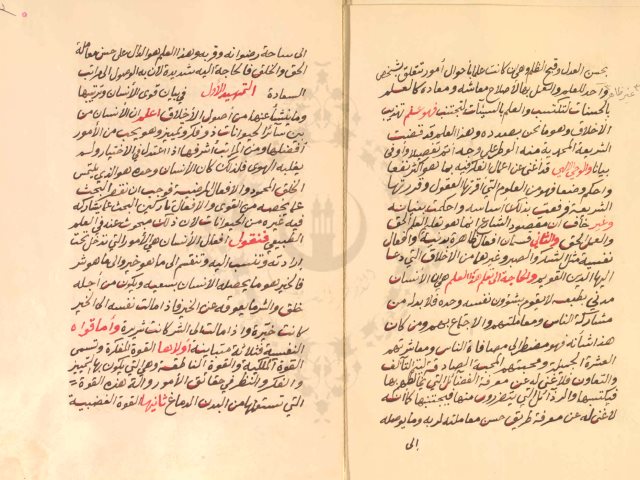 بحسن العدل وقبح الظلم وهي ان كانت علما باحوال امور تتعلق بشخص
واحد للعلم والعمل بها لاصلاح معاشه ومعاده كالعلم
بالحسنات لتكتسب والعلم بالسيئات لتجتنب فهو علم تهذيب
الاخلاق وهو ما نحن بصدده وهذا العلم قد قضت
الشريعة المحمدية منه الوطر على وجه اتم تفصيلا واوفى
بيانا والوحي الالهي قد اغنى عن اعمال الفكر فيه بما هو اكثر نفعا
واحكم وضعا فهو من العلوم التي اقرتها العقول وقررتها
الشريعة فوقعت بذلك اساسه واحكمت بنيانه
وغير خاف ان مقصود الشارع انما هو تعليم العلم الحق
والعمل الحق والثاني قسمان افعال ظاهرة بدنية وافعال
نفسية مثل الشكر والصبر وغيرها من الاخلاق التي دعا
اليها الدين القويم والحاجة الى هذا العلم هي ان الانسان
مدني بطبعه لا يقوم بشؤون نفسه وحده فلا بد له من
مشاركة الناس ومعاملتهم والاجتماع بهم ومن كان
هذا شانه فهو مضطر الى مصافاة الناس ومعاشرتهم
العشرة الجميلة ومحبتهم المحبة الصادقة لتتم التآلف
والتعاون فلا غنى له عن معرفة الفضائل التي
فيكتسبها والرذائل التي يتضررون منها فيجتنبها كما انه
لا غنى له عن معرفة طريق حسن معاملته لربه وما يوصله
الى
الى ساحة رضوانه وقربه وهذا العلم هو الدال على حسن معاملة
الحق والخلق فالحاجة اليه شديدة لان به الوصول الى مراتب
السعادة التمهيد الاول في بيان قوى الانسان وترتيبها
وما ينشأ عنها من اصول الاخلاق اعلم ان الانسان من
بين سائر الحيوانات ذو فكر وتمييز وهو يحب من الامور
افضلها ومن المراتب اشرفها اذا اعتدل في الاختيار ولم
يغلبه الهوى فلذلك كان الانسان وحده هو الذي يلتمس
الخلق المحمود والافعال المرضية فوجب ان نقصر البحث
عما يخصه من القوى والافعال تاركين البحث عما يشاركه
فيه غيره من الحيوانات لان ذلك مبحوث عنه في العلم
الطبيعي فنقول افعال الانسان هي الامور التي تدخل تحت
ارادته وتنسب اليه وتنقسم الى ما هو خير والى ما هو شر
فالخير هو ما يحصله الانسان بسعيه ويكون من اجله
خلق والشر ما يعوقه عن الخير فاذا مالت نفسه الى الخير
كانت خيرة واذا مالت الى الشر كانت شريرة واما قواه
النفسية فثلاثة متباينة اولاها القوة المفكرة وتسمى
القوة الملكية والقوة الناطقة وهي التي يكون بها التمييز
والفكر والنظر في حقائق الامور وآلة هذه القوة
التي تستعملها من البدن الدماغ ثانيها القوة الغضبية